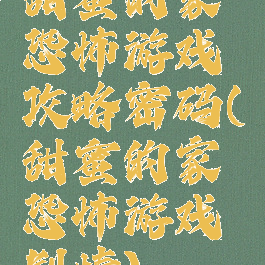 甜蜜的家
恐怖游戏
攻略密码(
甜蜜的家
恐怖游戏
剧情)